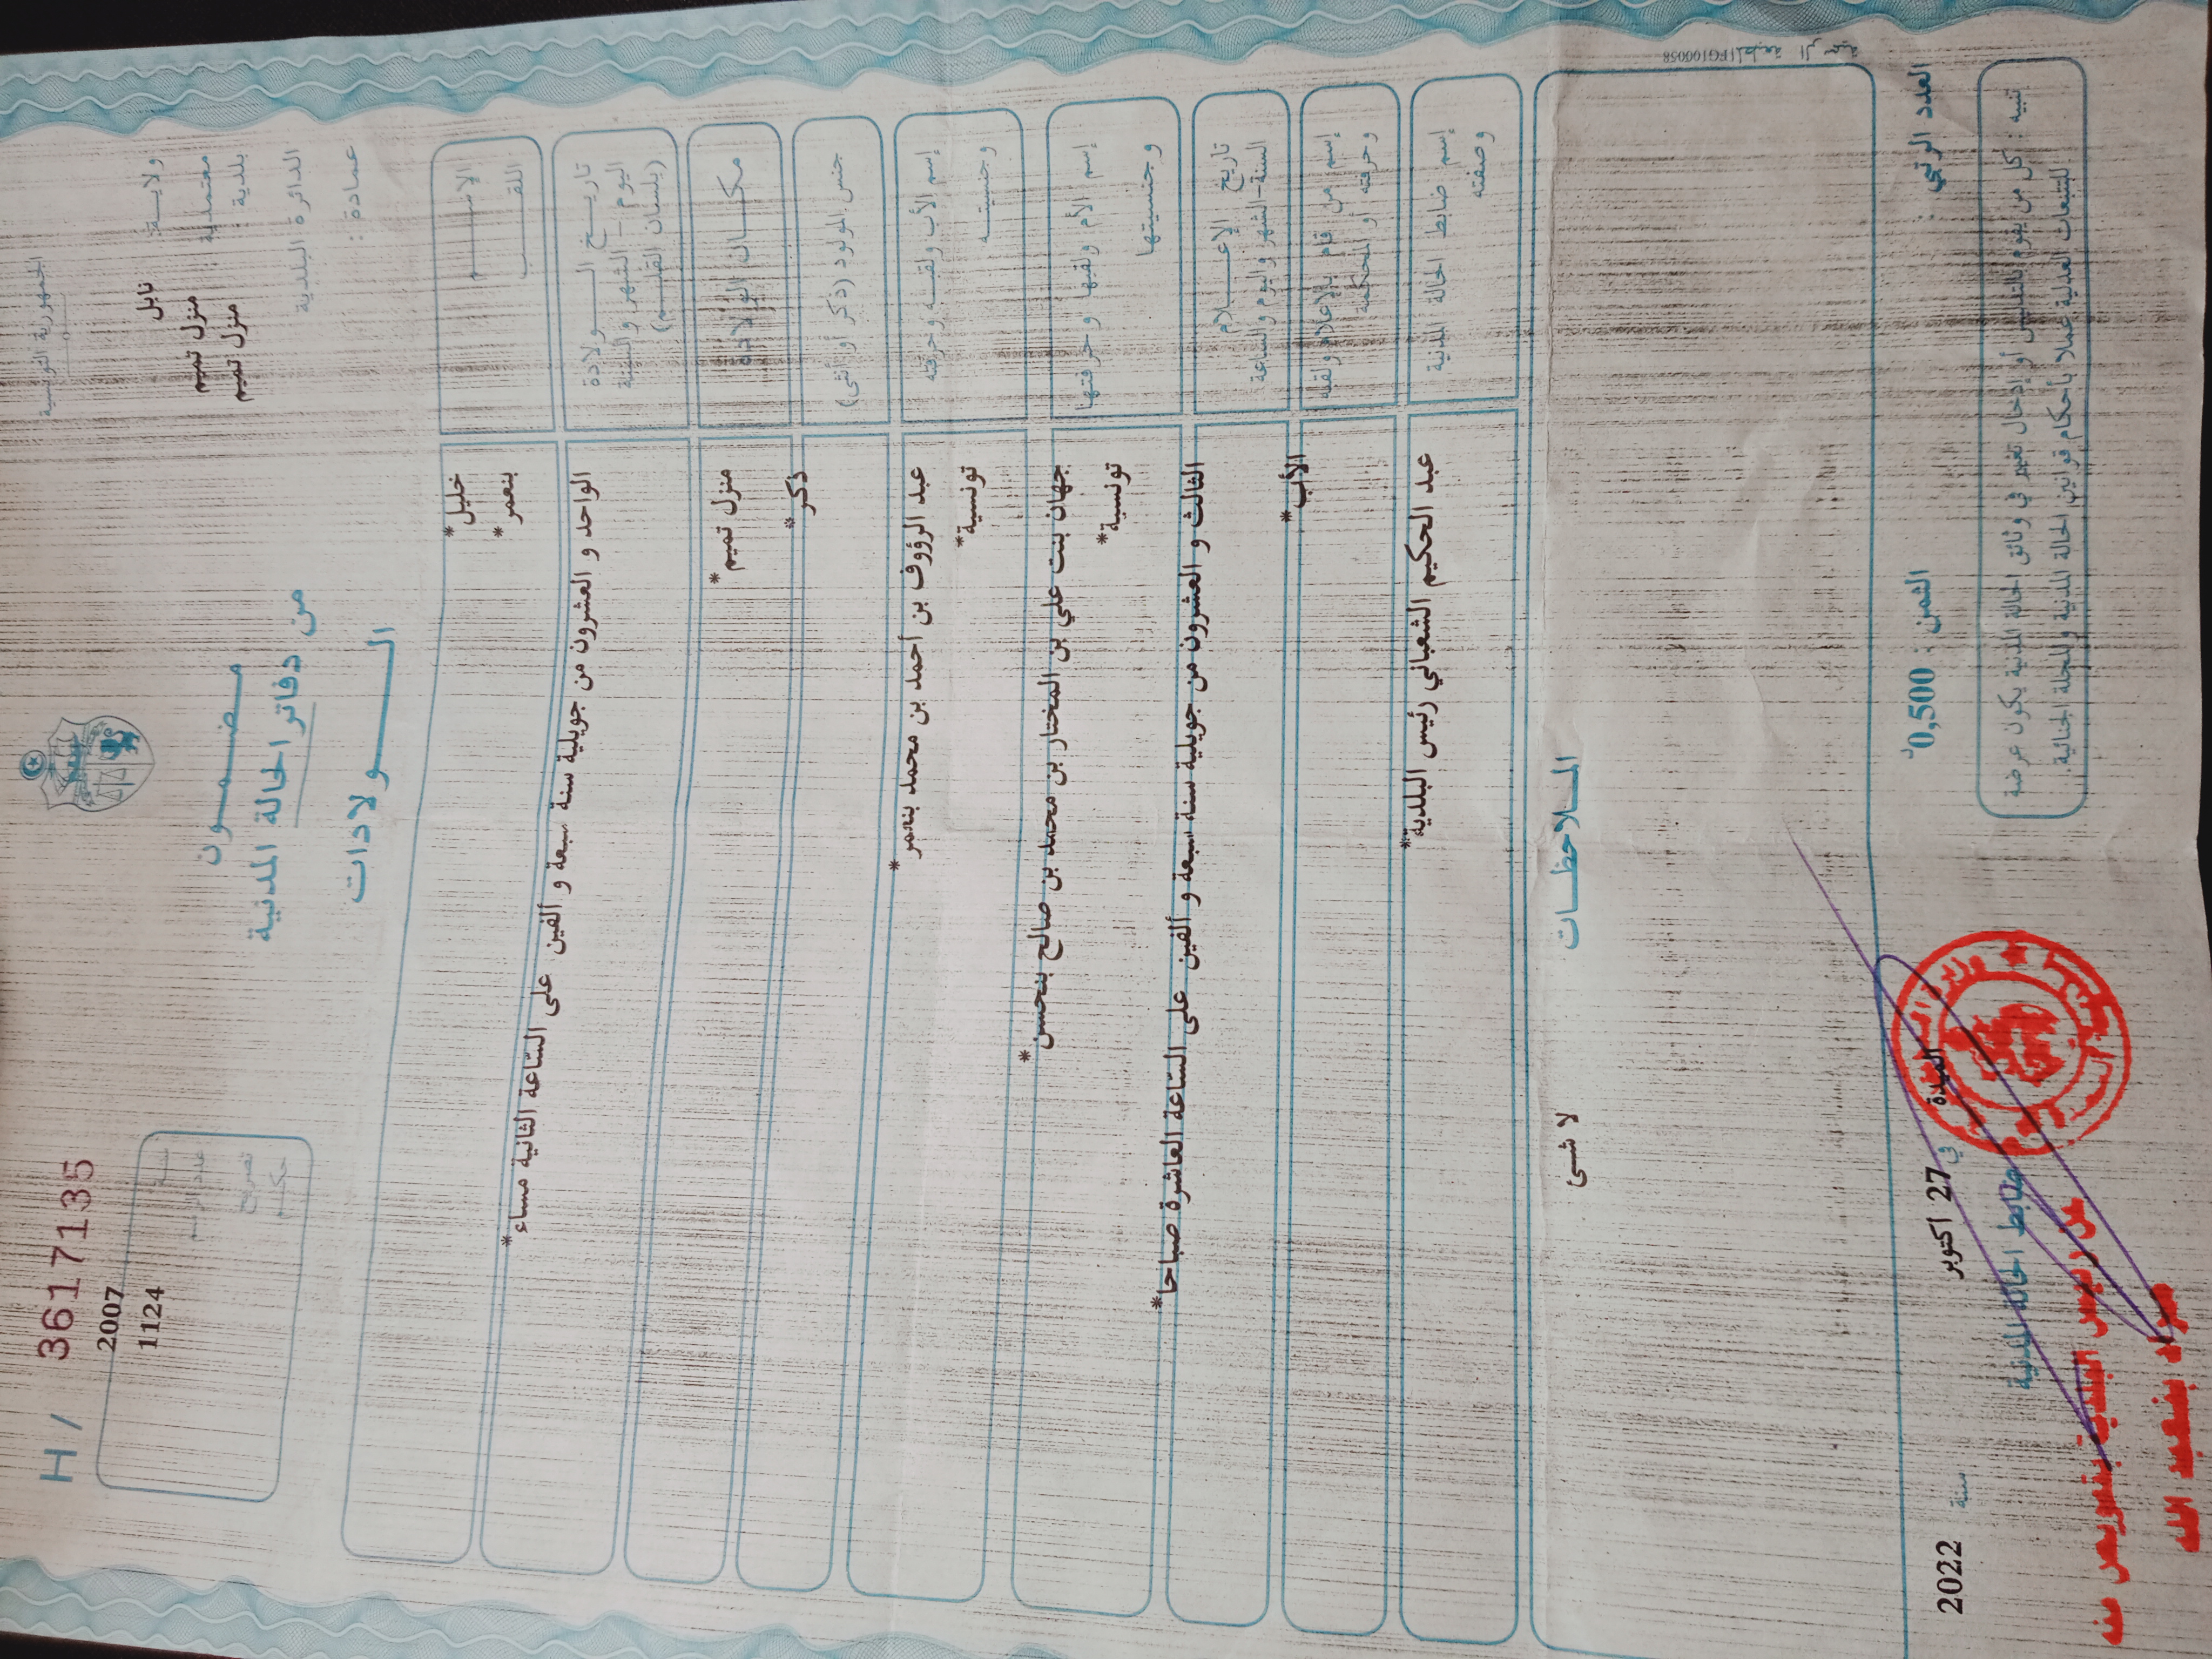 الجمهورية التونسية
H / 3617135
ولايـــة: نابل
معتمدية : منزل تميم
بلدية : منزل تميم
الدائرة البلدية
عمادة :
2007
1124
مـــضـــمـــون
من دفاتر الحالة المدنية
الـــــولادات
الاســـــم *خليل
اللقـــب *بنعمر
تاريـــخ الـــــولادة
اليوم – الشهر والسنة
(بلسان القلـــم)
الواحد و العشرون من جويلية سنة سبعة و ألفين على السّاعة الثانية مساء*
مكـــان الـولادة منزل تميم*
جنس المولود (ذكر أو أنثى) ذكر*
إسم الأب ولقبـــه وحرفته عبد الرؤوف بن أحمد بن محمد بنعمر*
وجنسيتـــه تونسية*
إسم الأم ولقبها وحرفتها جهان بنت علي بن المختار بن محمد بن صالح بنحسن*
وجنسيتها تونسية*
تاريخ الإعـــــلام
السنة-الشهر واليوم والساعة
الثالث و العشرون من جويلية سنة سبعة و ألفين على السّاعة العاشرة صباحا*
إسم من قام بالإعلام ولقبه
وحرفته أو المحكمة
الأب*
إسم ضابط الحالة المدنية عبد الحكيم الشعباني رئيس البلدية*
وصفته
المـــلاحظـــات
لا شئ
المطبعة الرسمية FG100058
العدد الرتبي :
الثمن : 0,500د
الميدة في 27 اكتوبر سنة 2022
ضابط الحالة المدنية
تنبيه : كل من يقوم بالتدليس أو إدخال تغيير في وثائق الحالة المدنية يكون عرضة
للتتبعات العدلية عملا بأحكام قوانين الحالة المدنية والمجلة الجنائية.
عن رئيس البلدية